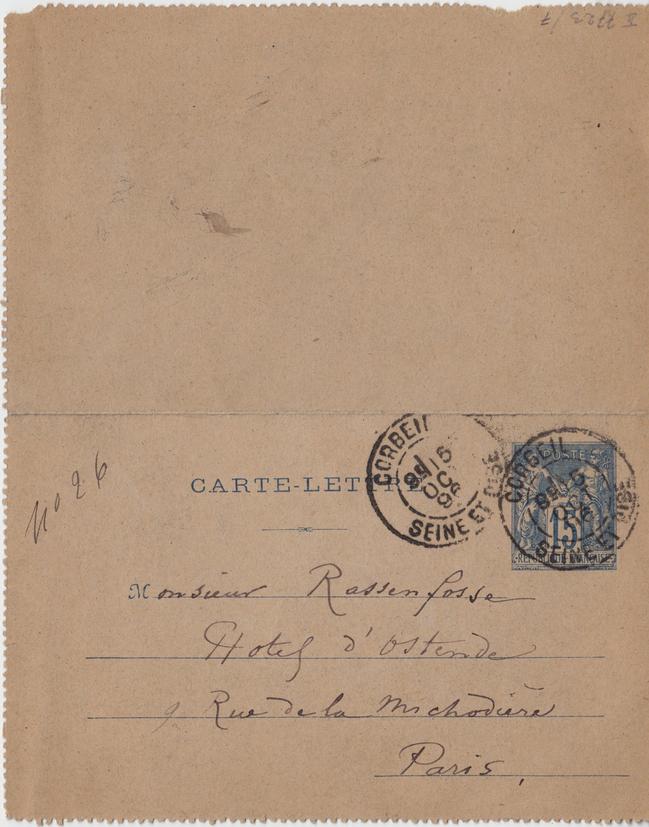 II 7723/7
CORBEIL
SEINE ET OISE
CARTE-LETTRE
CORBEIL
SEINE ET OISE
POSTE
15
REPUBLIQUE FRANCAISE
No 26
Monsieur Rassenfosse
Hotel d'Ostende
9 Rue de la Michodière
Paris,